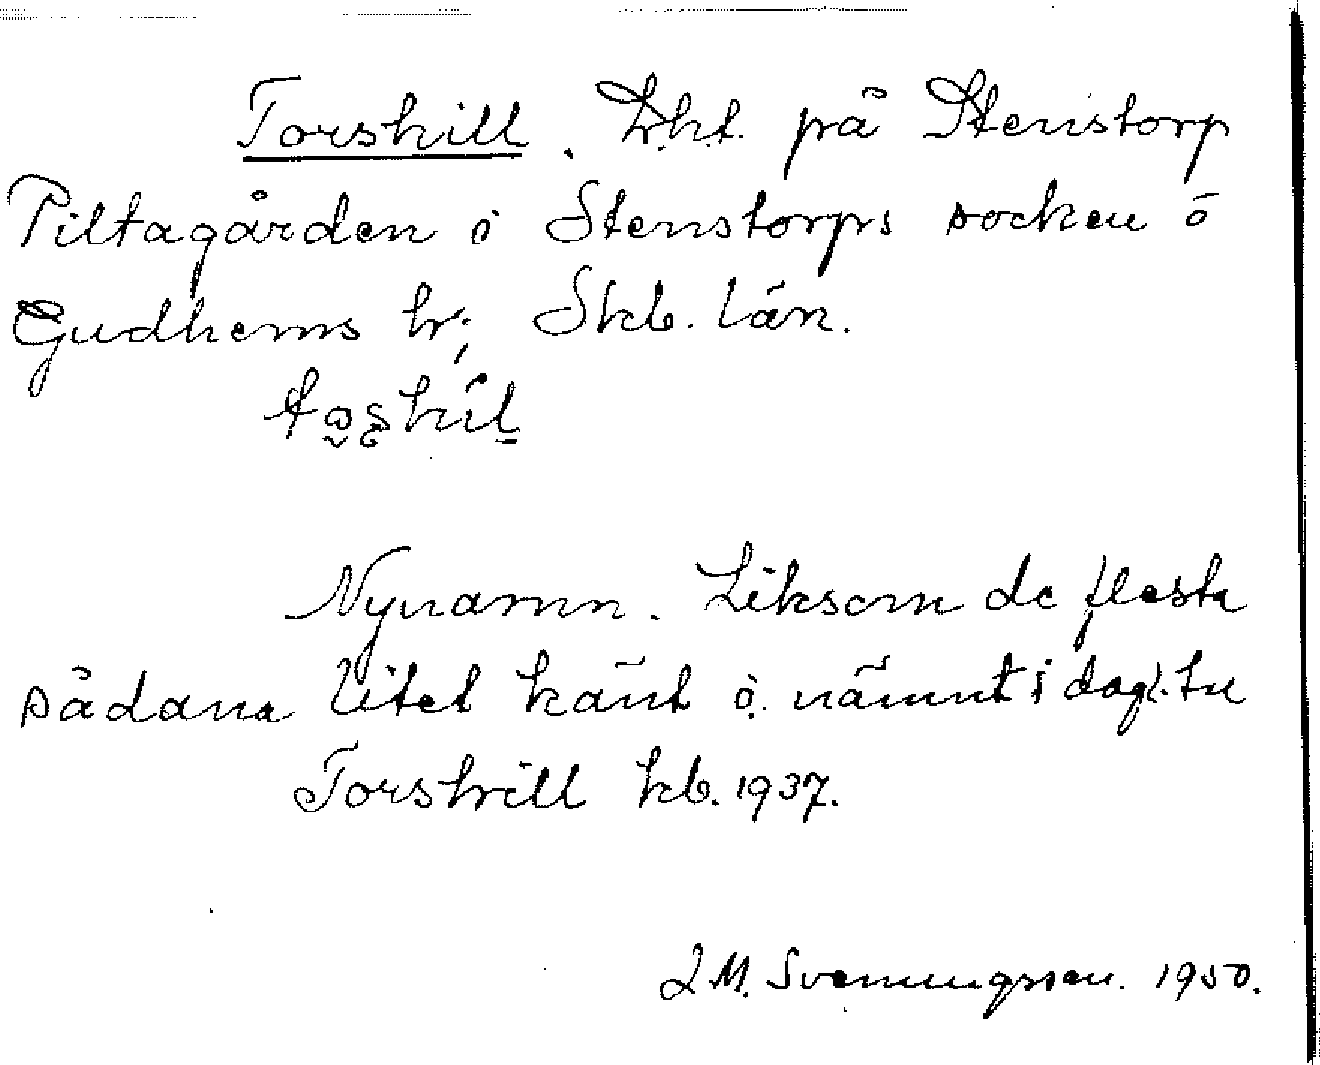 Torskill. Lht. på Stenstorp
Piltagården i Stenstorps socken i
Gudhems hr; Skb. län.

Nynamn. Liksom de flesta
sådana litet känt o. nämnt i dagl. tu
Torskill kb. 1937.
J M. Svenungsson. 1950.